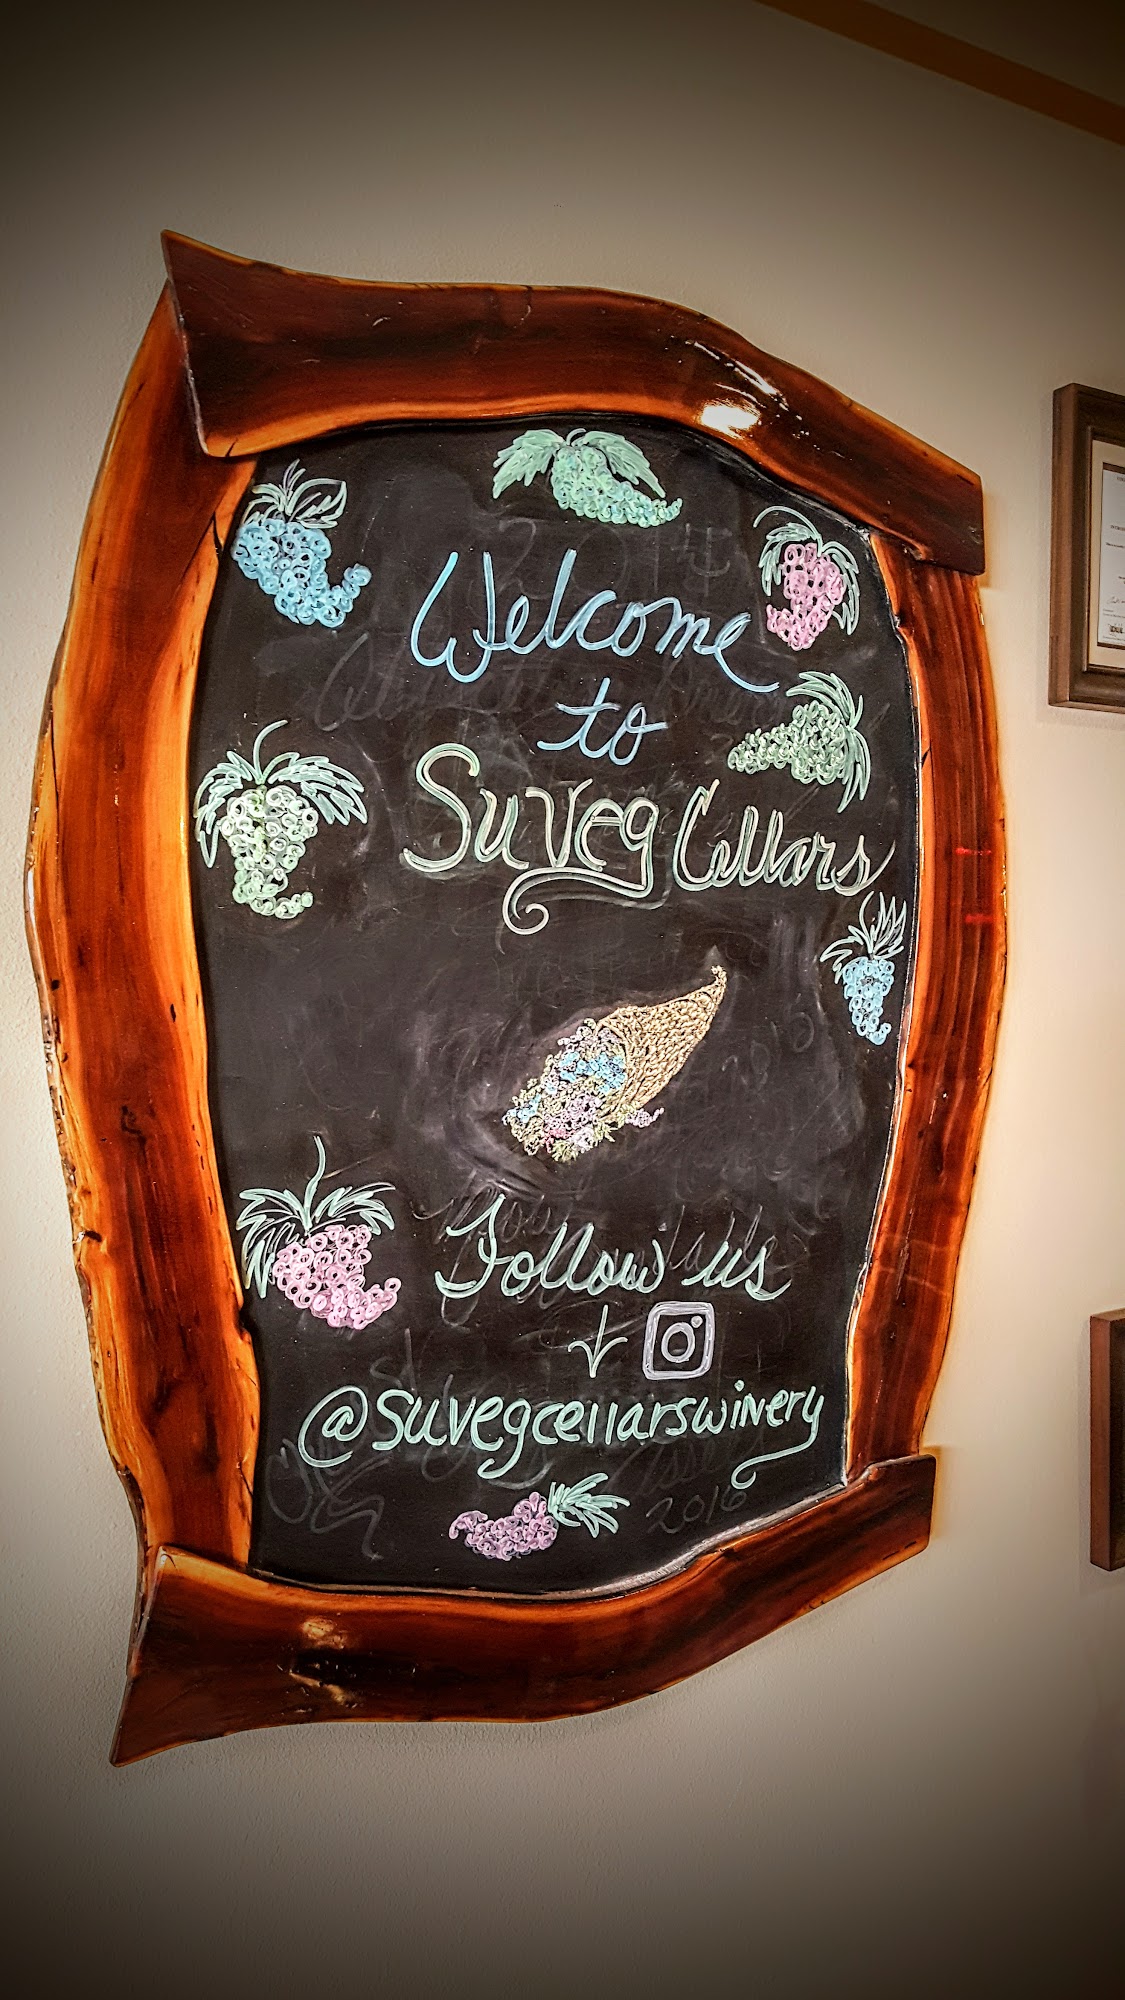 Welcome
to
Suveg Cellars
Follow us
@suvegcellarswinery
2016